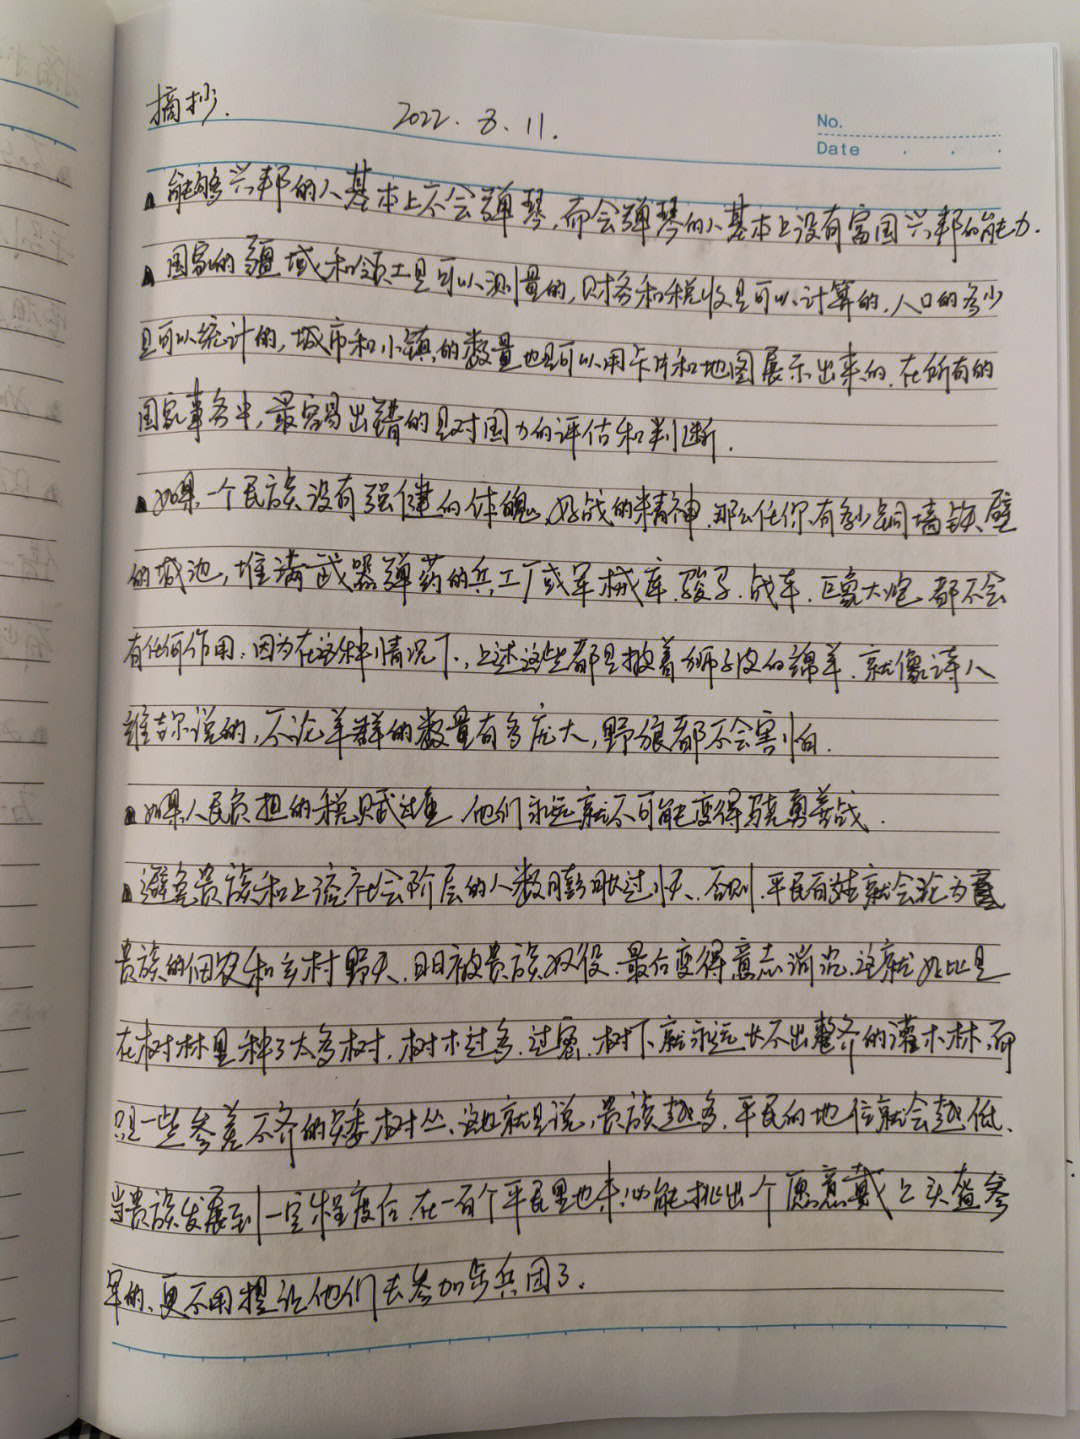 摘抄. 2022.8.11.
No.
Date
▲能够兴邦的人基本上不会弹琴,而会弹琴的人基本上没有富国兴邦的能力.
▲国家的疆域和领土是可以测量的,财务和税收是可以计算的,人口的多少
是可以统计的,城市和小镇的数量也是可以用卡片和地图展示出来的.在所有的
国家事务中,最容易出错的是对国力的评估和判断.
▲如果一个民族没有强健的体魄、好战的精神,那么任你有多少铜墙铁壁
的城池,堆满武器弹药的兵工厂或军械库.骏子.战车.巨象大炮.都不会
有任何作用,因为在这种情况下,上述这些都是披着狮子皮的绵羊.就像诗人
维吉尔说的,不论羊群的数量有多庞大,野狼都不会害怕.
▲如果人民负担的税赋过重,他们永远就不可能变得骁勇善战.
▲避免贵族和上流社会阶层的人数膨胀过快.否则.平民百姓就会沦为
贵族的佃农和乡村野夫.日日被贵族奴役.最后变得意志消沉.这就好比是
在树林里种了太多树.树木过多.过密.树下就永远长不出整齐的灌木林,而
只是一些参差不齐的矮树丛.这也就是说,贵族越多.平民的地位就会越低.
当贵族发展到一定程度后.在一百个平民里也未必能挑出一个愿意戴上头盔参
军的、更不用提让他们去参加步兵团了.